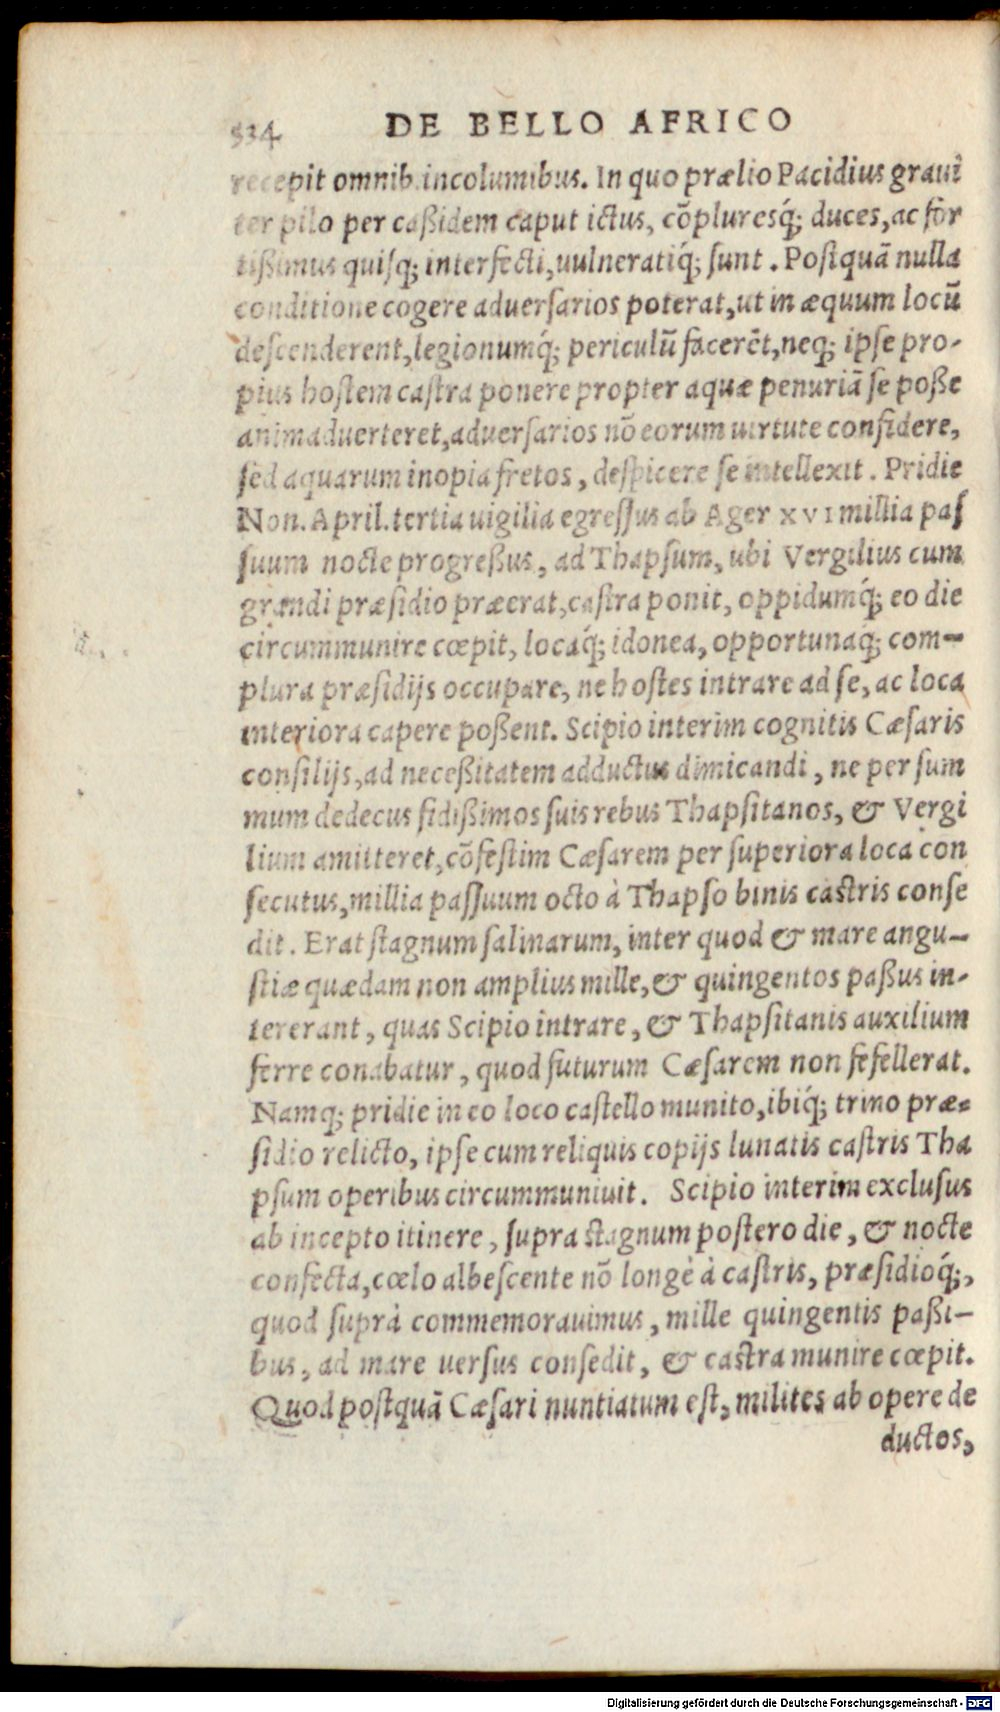 534 DE BELLO AFRICO
recepit omnib. incolumibus. In quo prælio Pacidius graui
ter pilo per caßidem caput ictus, cõpluresq́; duces, ac for
tißimus quisq; interfecti, uulneratiq́; sunt. Postquã nulla
conditione cogere aduersarios poterat, ut in æquum locũ
descenderent, legionumq́; periculũ facerẽt, neq; ipse pro-
pius hostem castra ponere propter aquæ penuriã se poße
animaduerteret, aduersarios nõ eorum uirtute confidere,
sed aquarum inopia fretos, despicere se intellexit. Pridie
Non. April. tertia uigilia egressus ab Ager XVI millia pas
suum nocte progreßus, ad Thapsum, ubi Vergilius cum
grandi præsidio præerat, castra ponit, oppidumq́; eo die
circummunire cœpit, locaq́; idonea, opportunaq́; com-
plura præsidijs occupare, ne hostes intrare ad se, ac loca
interiora capere poßent. Scipio interim cognitis Cæsaris
consilijs, ad neceßitatem adductus dimicandi, ne per sum
mum dedecus fidißimos suis rebus Thapsitanos, & Vergi
lium amitteret, cõfestim Cæsarem per superiora loca con
secutus, millia passuum octo à Thapso binis castris conse
dit. Erat stagnum salinarum, inter quod & mare angu-
stiæ quædam non amplius mille, & quingentos paßus in-
tererant, quas Scipio intrare, & Thapsitanis auxilium
ferre conabatur, quod futurum Cæsarem non fefellerat.
Namq; pridie in eo loco castello munito, ibiq́; trino præ-
sidio relicto, ipse cum reliquis copijs lunatis castris Tha
psum operibus circummuniuit. Scipio interim exclusus
ab incepto itinere, supra stagnum postero die, & nocte
confecta, cœlo albescente nõ longè à castris, præsidioq́;,
quod suprà commemorauimus, mille quingentis paßi-
bus, ad mare uersus consedit, & castra munire cœpit.
Quod postquã Cæsari nuntiatum est, milites ab opere de
ductos,
Digitalisierung gefördert durch die Deutsche Forschungsgemeinschaft - DFG